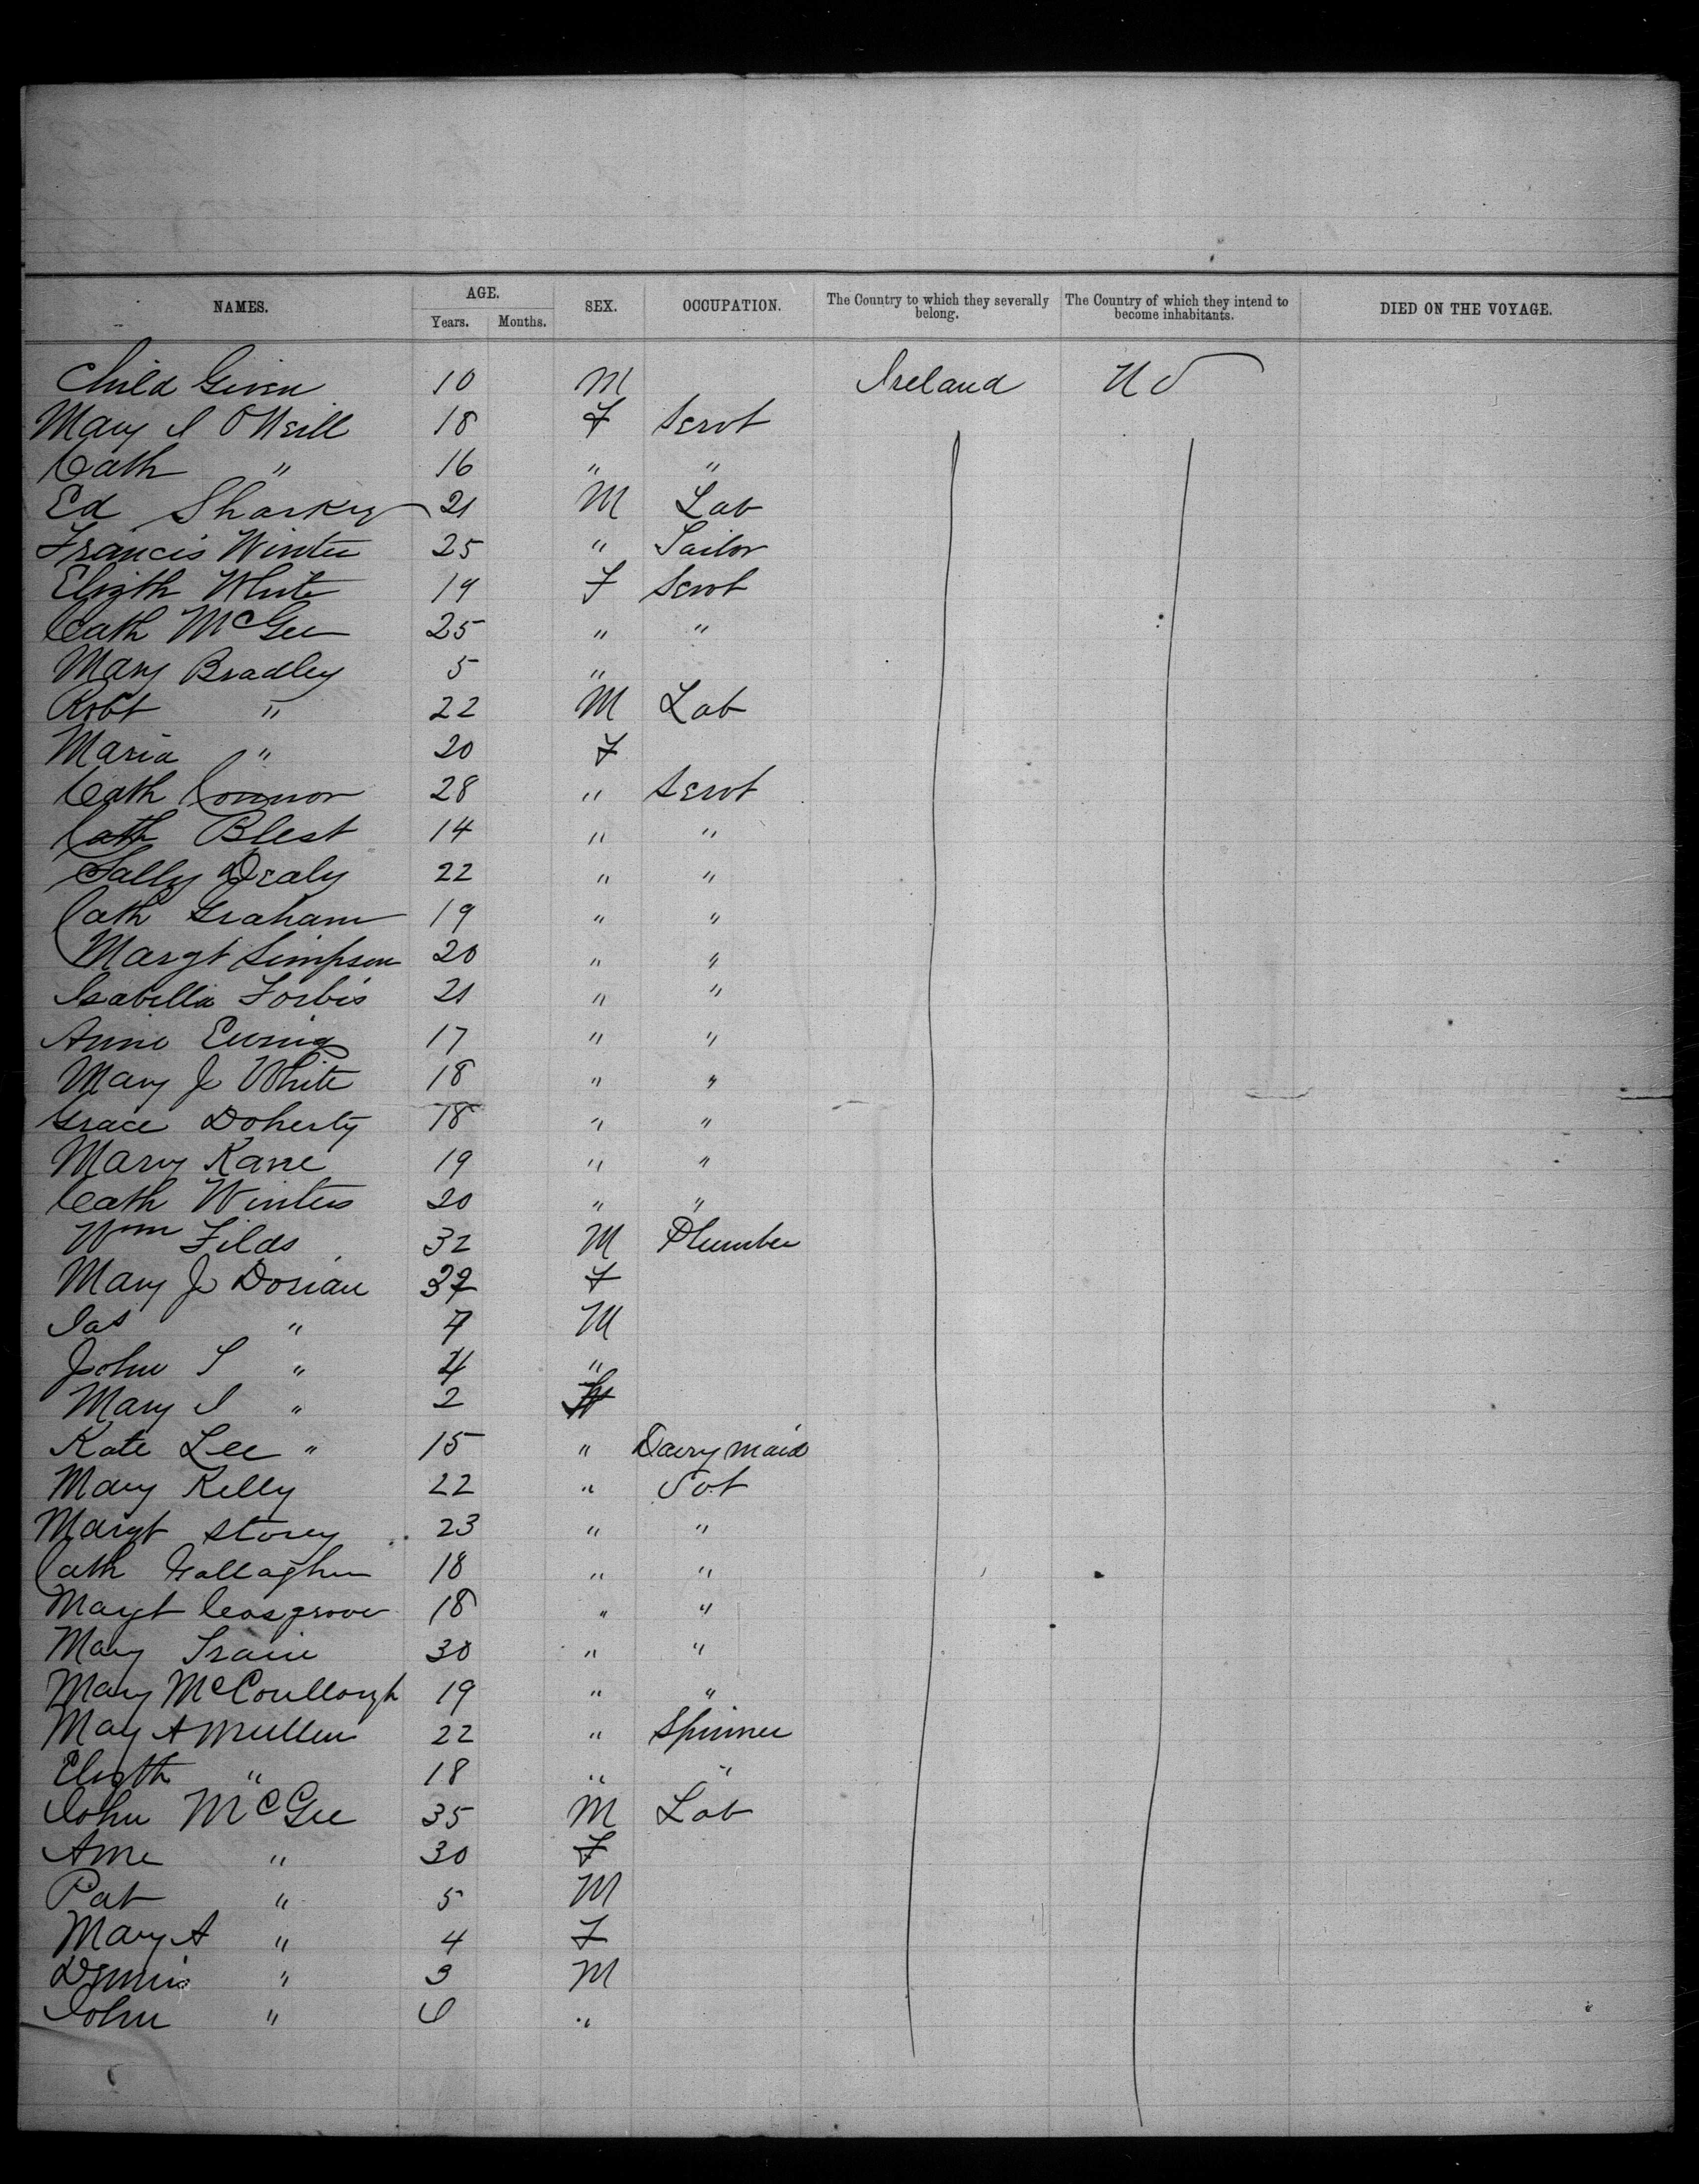 NAMES. AGE. SEX. OCCUPATION. The Country to which they severally belong. The Country of which they intend to become inhabitants. DIED ON THE VOYAGE.
Years. Months.
Child Given 10 M Ireland U S
Mary J O'Neill 18 F Servt
Cath " 16 " "
Ed Sharkey 21 M Lab
Francis Winter 25 " Sailor
Elizth White 19 F Servt
Cath McGee 25 " "
Mary Bradley 5 "
Robt " 22 M Lab
Maria " 20 F
Cath Connor 28 " Servt
Cath Blest 14 " "
Sally Dealy 22 " "
Cath Graham 19 " "
Margt Simpson 20 " "
Isabella Forbis 21 " "
Anne Ewing 17 " "
Mary J White 18 " "
Grace Doherty 18 " "
Mary Kane 19 " "
Cath Winters 20 " "
Wm Filds 32 M Plumber
Mary J Dorian F
Jas " 7 M
John S " 4 "
Mary J " 2 F
Kate Lee " 15 " Dairy maid
Mary Kelly 22 " Svt
Margt Storey 23 " "
Cath Gallagher 18 " "
Margt Cosgrove 18 " "
Mary 30 " "
Mary McCoullough 19 " "
May A Mullen 22 " Spinner
Elizth " 18 " "
John McGee 35 M Lab
Anne " 30 F
Pat " 5 M
Mary A " 4 F
Dennis " 3 M
John " "